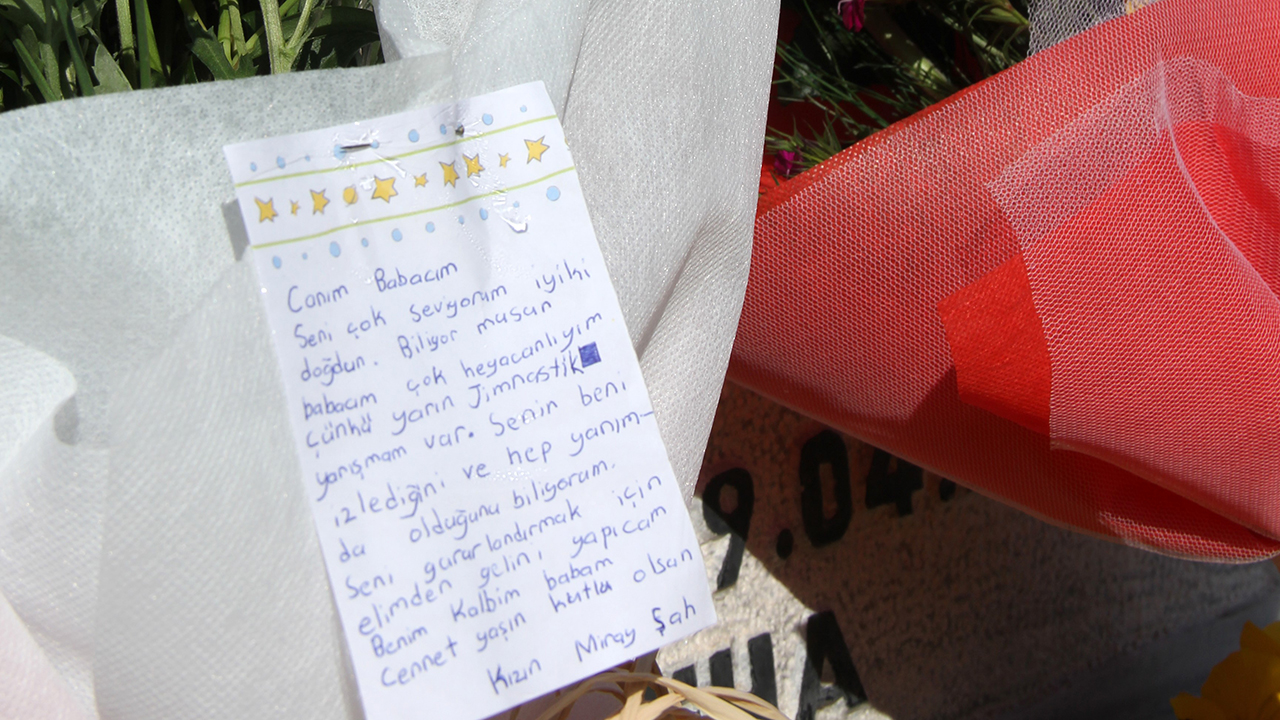 Canım Babacım
Seni çok seviyorum iyiki
doğdun. Biliyor musun
babacım çok heyacanlıyım
çünkü yarın Jimnastik
yarışmam var. Senin beni
izlediğini ve hep yanım-
da olduğunu biliyorum.
Seni gururlandırmak için
elimden gelini yapıcam
Benim Kalbim babam
Cennet yaşın kutlu olsun
Kızın Miray Şah
9.04.